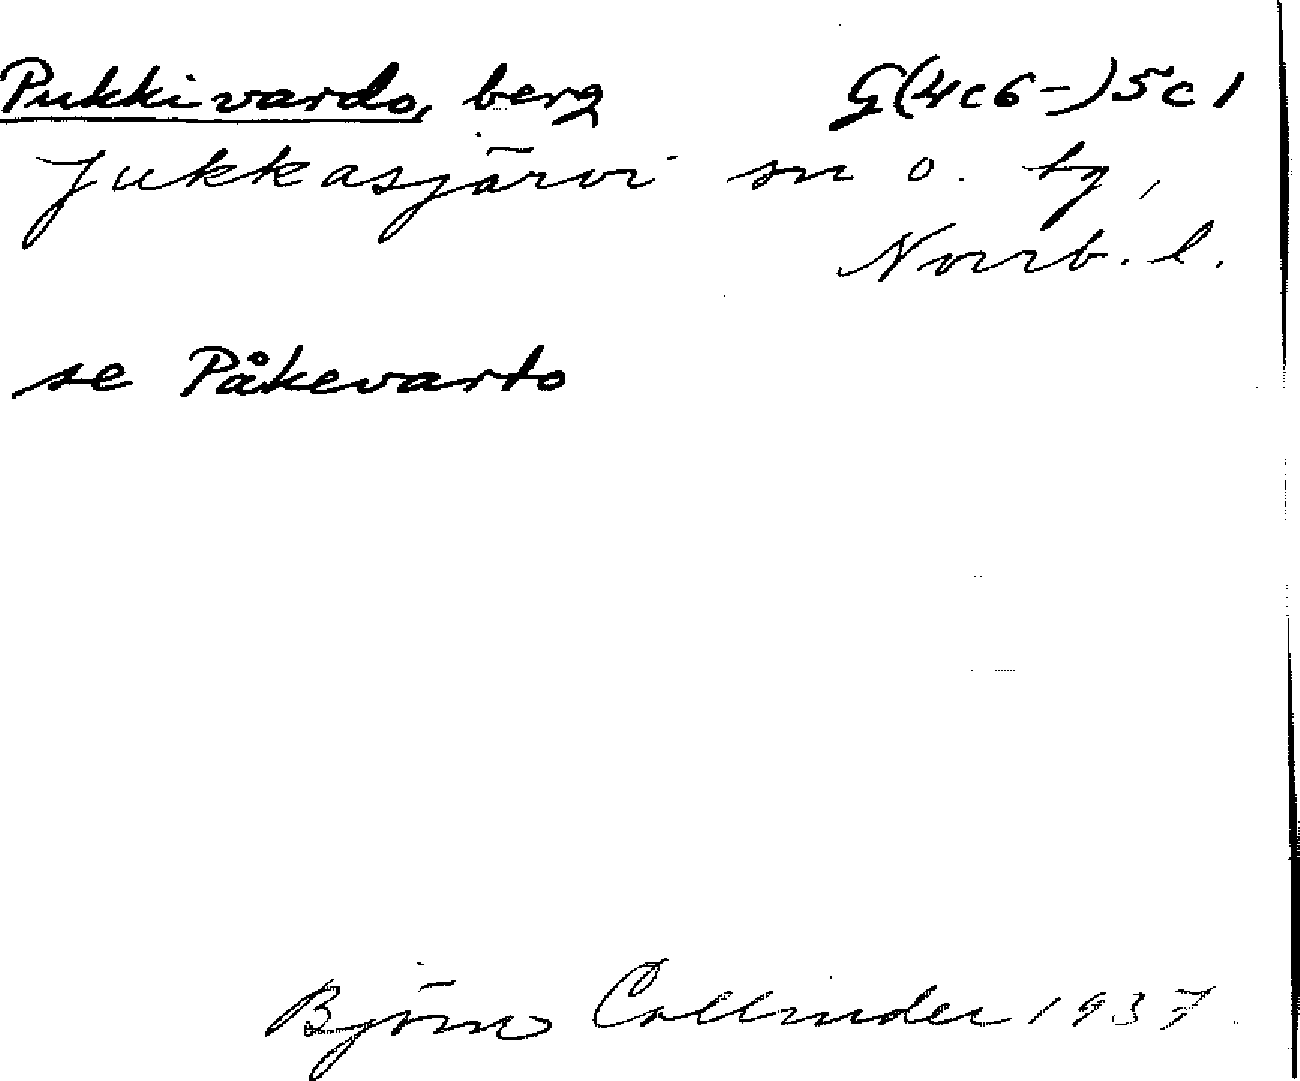 Pukkivardo, berg G(4c6-)5c1
Jukkasjärvi sn o. tg,
Norrb. l.
se Påkevarto
Björn Collinder 1937